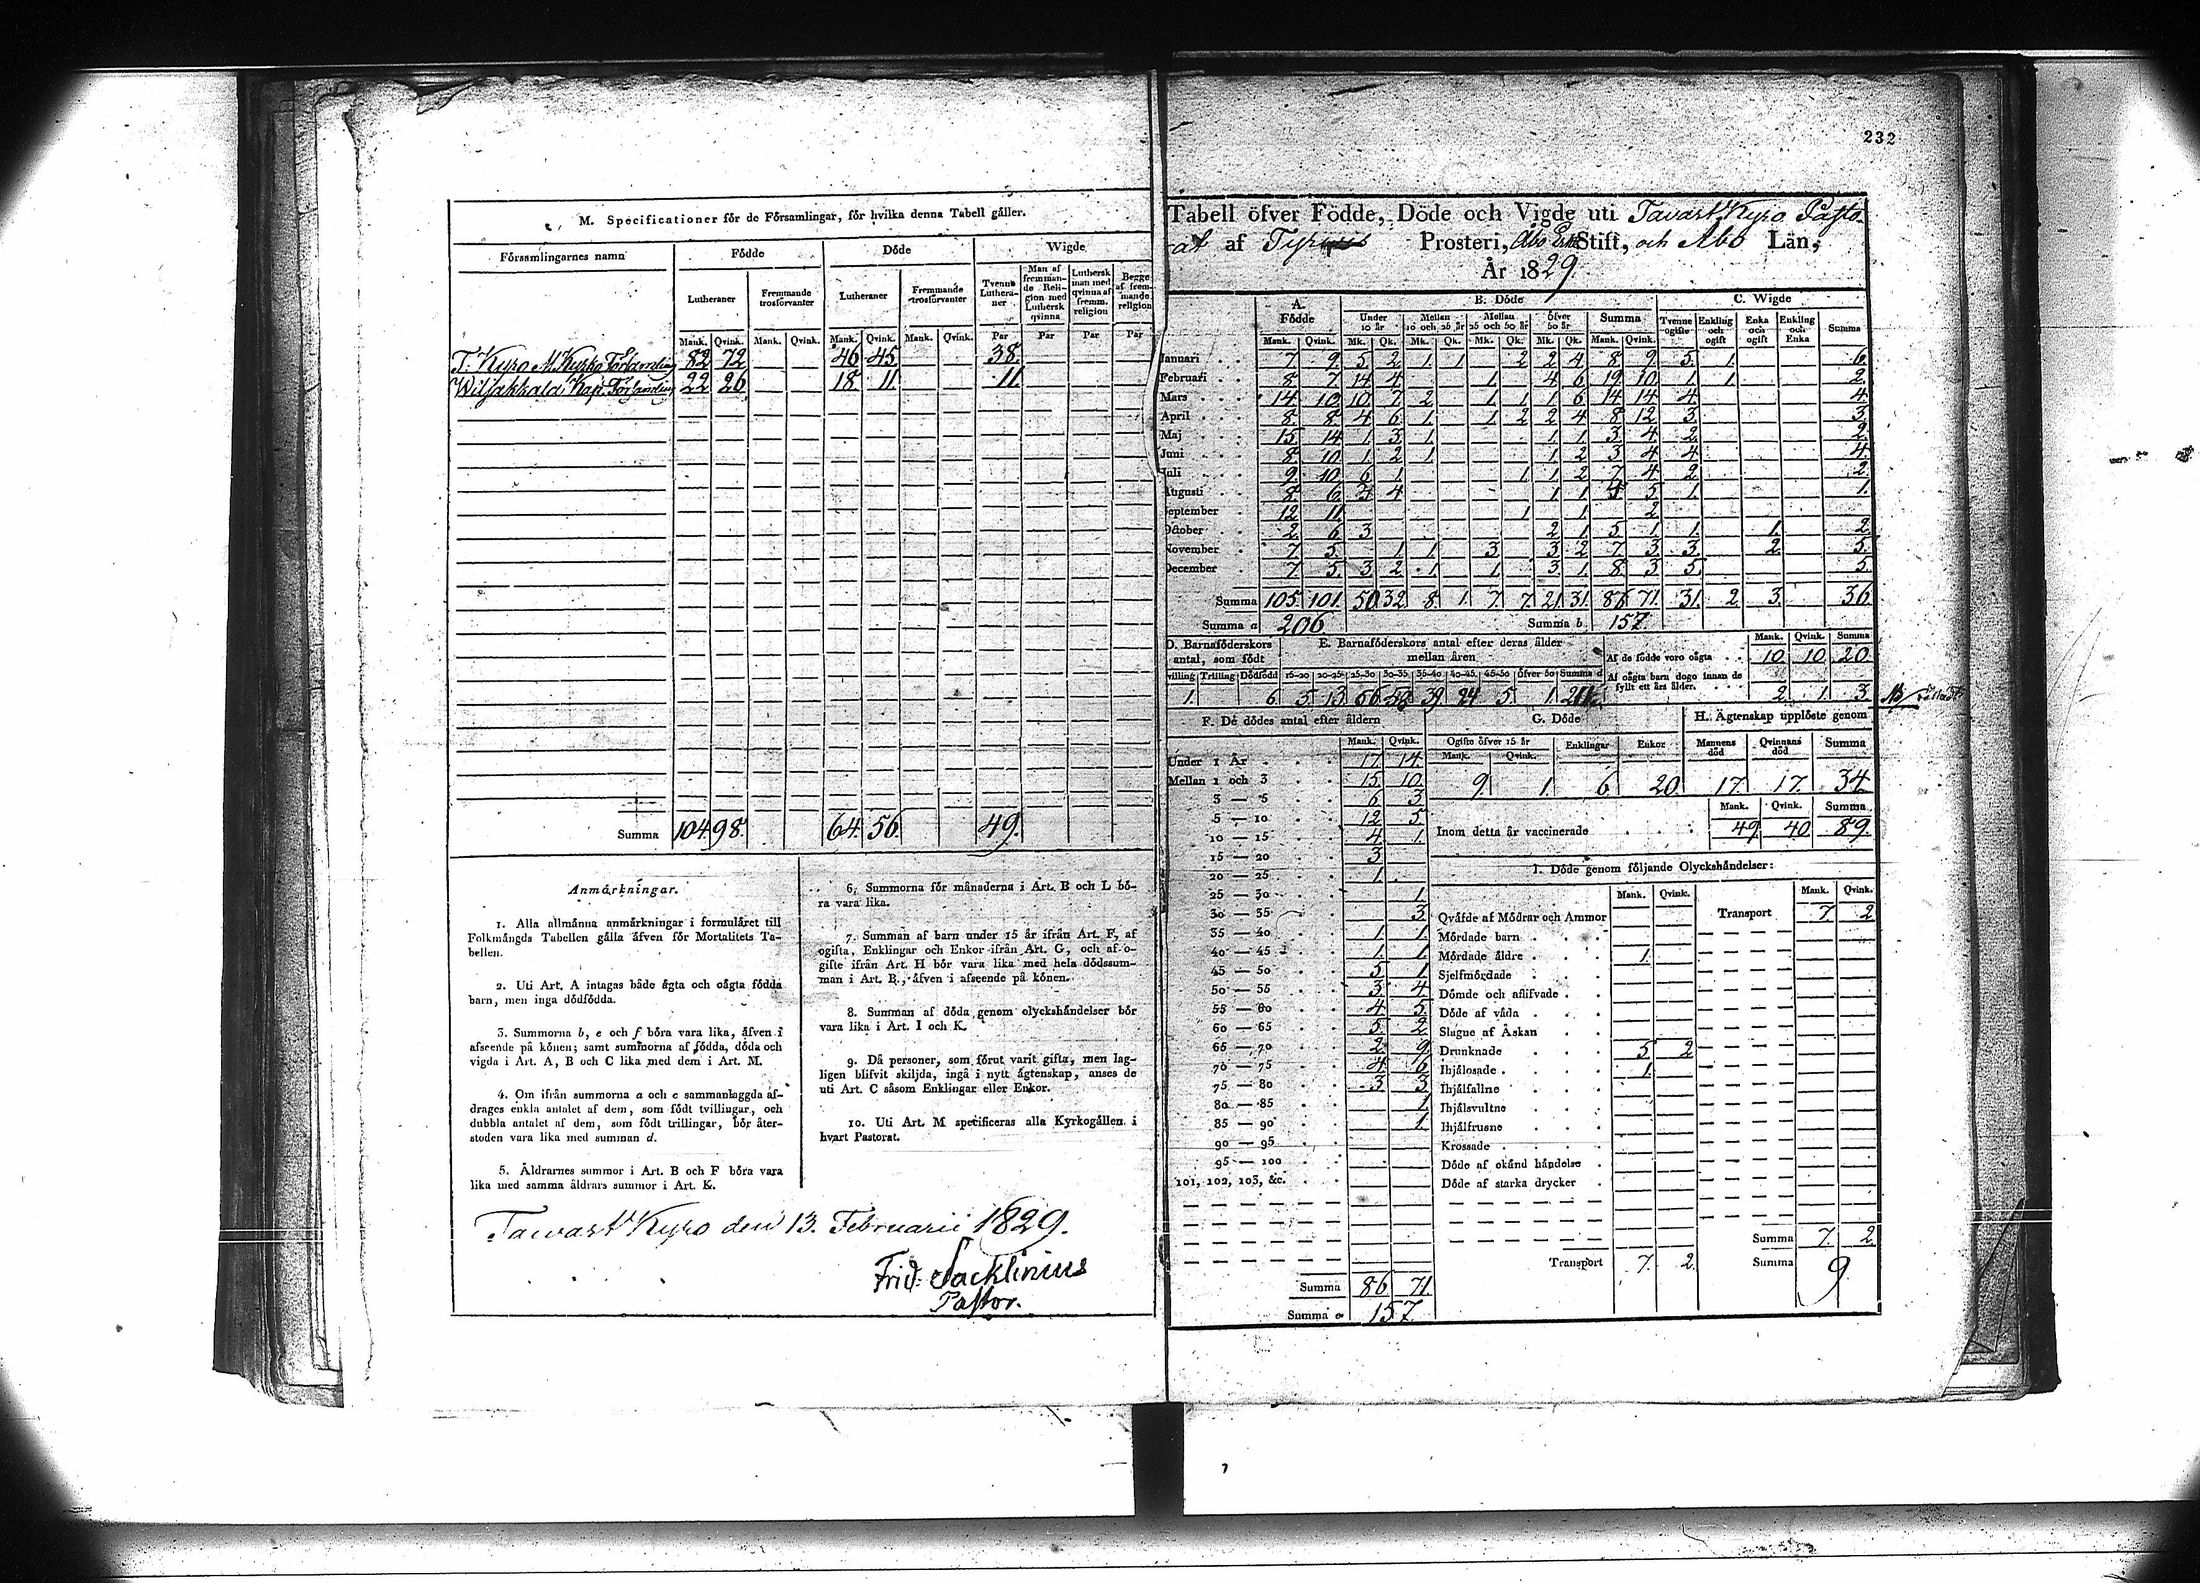 M. Specificationer för de Församlingar, för hvilka denna Tabell gäller.
Församlingarnes namn Födde Döde Wigde
Lutheraner Fremmande trosförvanter Lutheraner Fremmande trosförvanter Tvenne Lutheraner Man af fremmande Religion med Luthersk qvinna Luthersk man med qvinna af fremm. religion Begge af fremmande religion
Mank. Qvink. Mank. Qvink. Mank. Qvink. Mank. Qvink. Par Par Par Par
T. Kyro M. Kyrko Församling 82 72 46 45 38.
Wiljakkala Kap. Församling 22 26 18 11 11.
Summa 104 98. 64. 56. 49.
Anmärkningar.
1. Alla allmänna anmärkningar i formuläret till
Folkmängds Tabellen gälla äfven för Mortalitets Ta-
bellen.
2. Uti Art. A intagas både ägta och oägta födda
barn, men inga dödfödda.
3. Summorna b, e och f böra vara lika, äfven i
afseende på könen; samt summorna af födda, döda och
vigda i Art. A, B och C lika med dem i Art. M.
4. Om ifrån summorna a och c sammanlaggda af-
drages enkla antalet af dem, som födt tvillingar, och
dubbla antalet af dem, som födt trillingar, bör åter-
stoden vara lika med summan d.
5. Äldrarnes summor i Art. B och F böra vara
lika med samma äldrars summor i Art. K.
6. Summorna för månaderna i Art. B och L bö-
ra vara lika.
7. Summan af barn under 15 år ifrån Art. F, af
ogifta, Enklingar och Enkor ifrån Art. G, och af o-
gifte ifrån Art. H bör vara lika med hela dödssum-
man i Art. B., äfven i afseende på könen.
8. Summan af döda genom olyckshändelser bör
vara lika i Art. I och K.
9. Då personer, som förut varit gifta, men lag-
ligen blifvit skiljda, ingå i nytt ägtenskap, anses de
uti Art. C såsom Enklingar eller Enkor.
10. Uti Art. M specificeras alla Kyrkogällen i
hvart Pastorat.
Tawast Kyro den 13. Februarii 1829.
Frid. Sacklinius
Pastor.
232
Tabell öfver Födde, Döde och Vigde uti Tavast Kyro Pasto-
rat af Prosteri, Åbo Stift, och Åbo Län,
År 1829.
A. Födde B. Döde C. Wigde
Under 10 år Mellan 10 och 25 år Mellan 25 och 50 år Öfver 50 år Summa Tvenne ogifte Enkling och ogift Enka och ogift Enkling och Enka Summa
Mank. Qvink. Mk. Qk. Mk. Qk. Mk. Qk. Mk. Qk. Mank. Qvink.
Januari 7. 9. 5. 2. 1. 1. 2. 2. 4. 8. 9. 5. 1. 6.
Februari 8. 7. 14. 4. 1. 4. 6. 19. 10. 1. 1. 2.
Mars 14. 10. 10. 7. 2. 1. 1. 1. 6. 14. 14. 4. 4.
April 8. 8. 4. 6. 1. 1. 2. 2. 4. 8. 12. 3. 3.
Maj 15. 14. 1. 3. 1. 1. 1. 3. 4. 2. 2.
Juni 8. 10. 1. 2. 1. 1. 2. 3. 4. 4. 4.
Juli 9. 10. 6. 1. 1. 1. 2. 7. 4. 2. 2.
Augusti 8. 6. 4. 1. 1. 5. 1. 1.
September 12. 11. 1. 1. 2.
October 2. 6. 3. 2. 1. 5. 1. 1. 1. 2.
November 7. 5. 1. 1. 3. 3. 2. 7. 3. 3. 2. 5.
December 7. 5. 3. 2. 1. 1. 3. 1. 8. 3. 5. 5.
Summa 105. 101. 50. 32. 8. 1. 7. 7. 21. 31. 86. 71. 31. 2. 3. 36
Summa a 206 Summa b 157.
D. Barnaföderskors antal, som födt
E. Barnaföderskors antal efter deras ålder mellan åren
Mank. Qvink. Summa
Af de födde voro oägta 10. 10. 20.
Tvilling Trilling Dödfödd 15-20 20-25 25-30 30-35 35-40 40-45 45-50 Öfver 50 Summa d
Af oägta barn dogo innan de fyllt ett års ålder. 2. 1. 3.
1. 6. 5. 13. 66 58 39. 24 5. 1.
F. De dödes antal efter åldern G. Döde H. Ägtenskap upplöste genom
Mank. Qvink. Ogifte öfver 15 år Enklingar Enkor Mannens död Qvinnans död Summa
Mank. Qvink.
9. 1. 6. 20. 17. 17. 34.
Mank. Qvink. Summa
Inom detta år vaccinerade 49. 40. 89.
Under 1 År 17. 14.
Mellan 1 och 3 15. 10.
3 — 5 6. 3.
5 — 10 12. 5.
10 — 15 4. 1.
15 — 20 3.
20 — 25 1.
25 — 30 1.
30 — 35 3.
35 — 40 1. 1.
40 — 45 1. 1.
45 — 50 5. 1.
50 — 55 3. 4.
55 — 60 4. 5.
60 — 65 5. 2.
65 — 70 2. 9.
70 — 75 4. 6.
75 — 80 3. 3.
80 — 85 1.
85 — 90 1.
90 — 95
95 — 100
101, 102, 103, &c.
Summa 86. 71.
Summa e 157.
I. Döde genom följande Olyckshändelser:
Mank. Qvink. Mank. Qvink.
Qväfde af Mödrar och Ammor Transport 7. 2.
Mördade barn
Mördade äldre 1.
Sjelfmördade
Dömde och aflifvade
Döde af våda
Slagne af Åskan
Drunknade 5. 2.
Ihjälosade 1.
Ihjälfallne
Ihjälsvultne
Ihjälfrusne
Krossade
Döde af okänd händelse
Döde af starka drycker
Summa 7. 2.
Transport 7. 2. Summa 9.